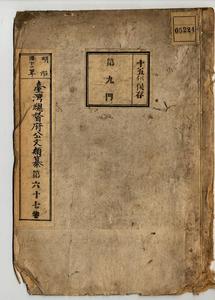 明治
三十二年
臺灣總督府公文類纂第六十七卷
十五年保存
第九門